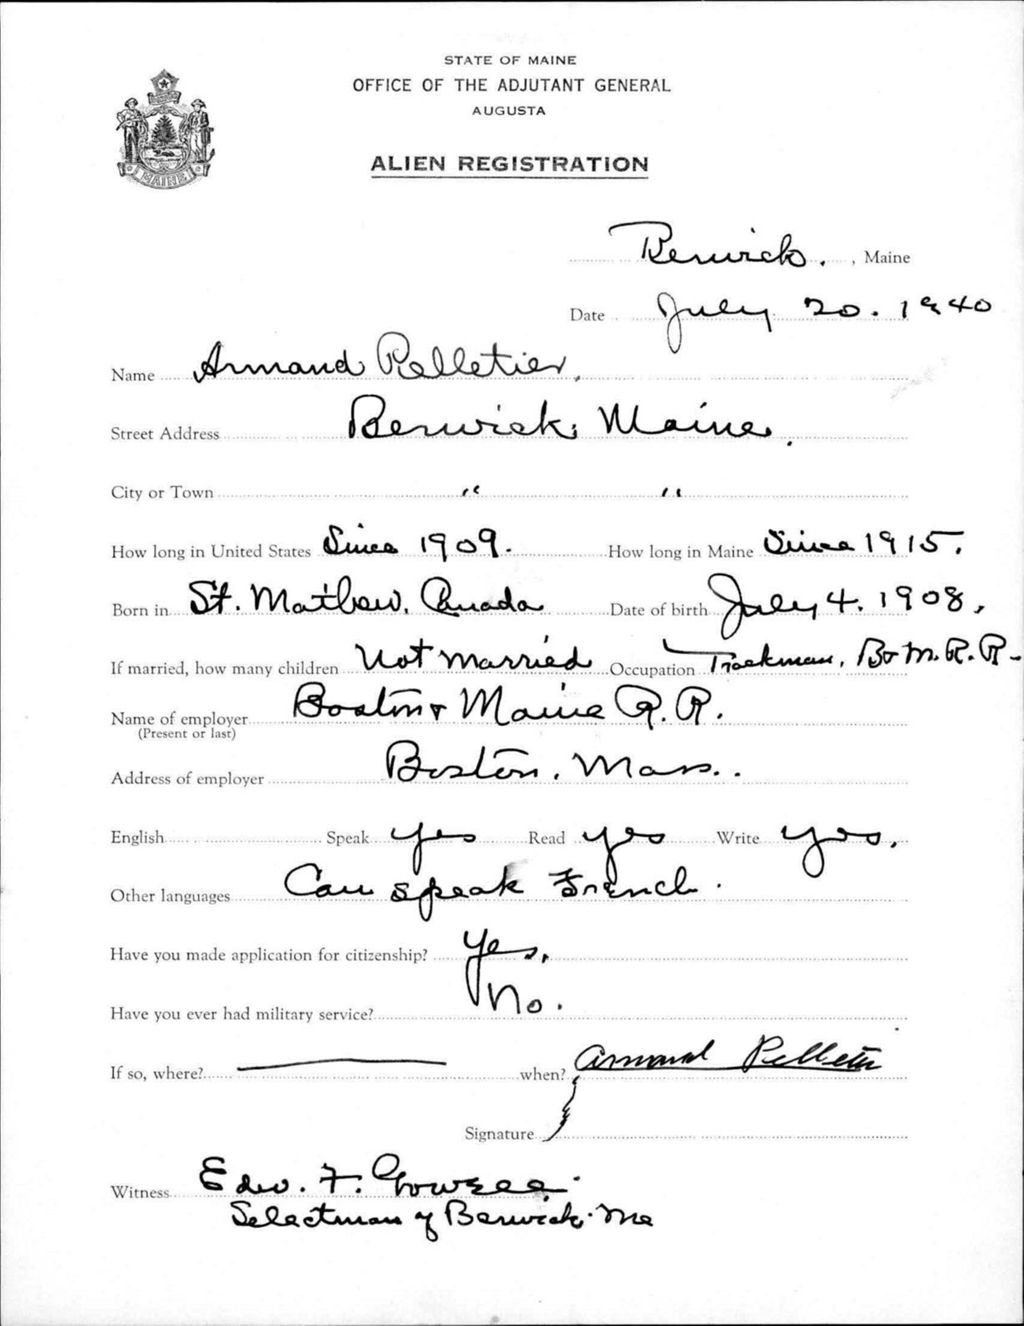 STATE OF MAINE
OFFICE OF THE ADJUTANT GENERAL
AUGUSTA
ALIEN REGISTRATION
MAINE
Berwick. , Maine
Date July 20. 1940
Name Armand Pelletier,
Street Address Berwick, Maine.
City or Town " "
How long in United States Since 1909. How long in Maine Since 1915.
Born in St. Mathew, Canada Date of birth July 4. 1908.
If married, how many children Not Married Occupation Trackman, B+M.R.R-
Name of employer Boston + Maine R.R.
(Present or last)
Address of employer Boston, Mass.
English Speak yes Read yes Write yes.
Other languages Can speak French.
Have you made application for citizenship? Yes.
Have you ever had military service? No.
If so, where? when? Armand Pelletier
Signature
Witness Edw. F.
Selectman of Berwick Me